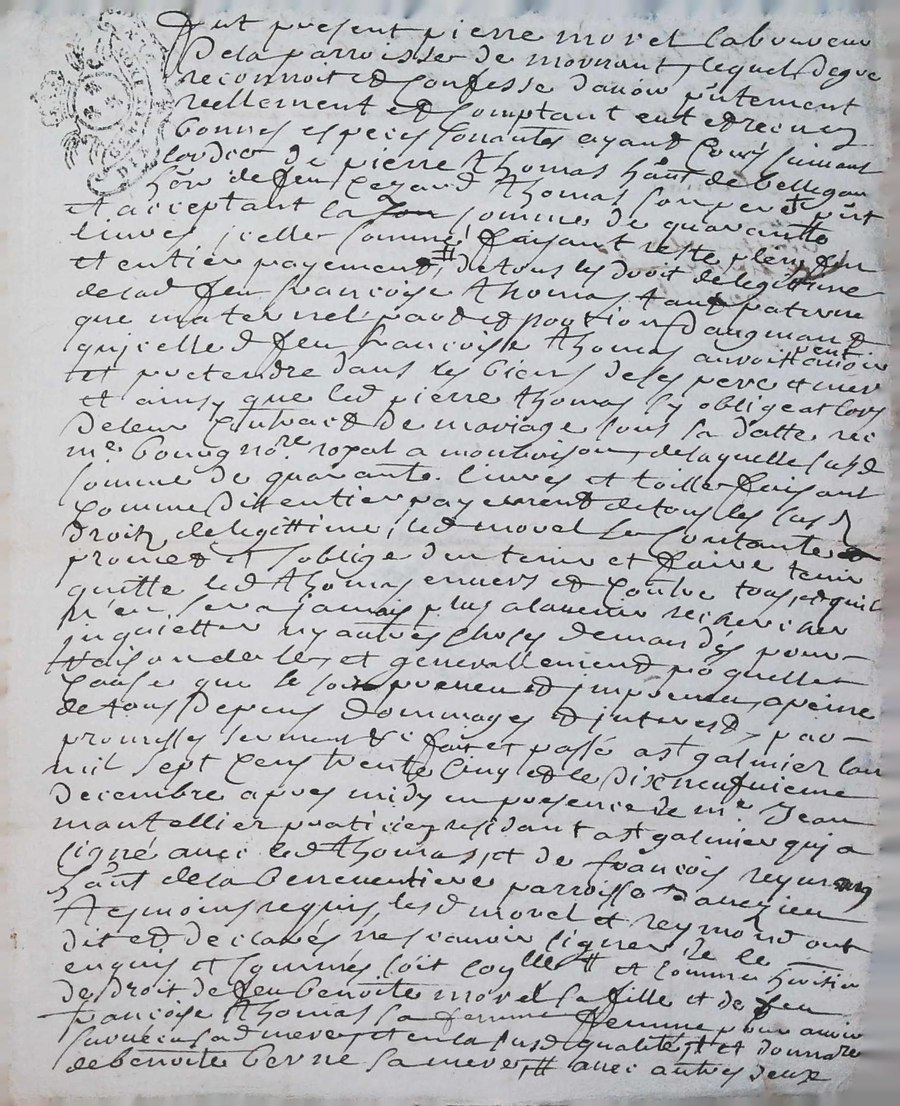 fut present pierre morel laboureur
De la parroisse de mornant, lequel de gre
reconnoit et confesse dauoir pntement
reellement et comptant eut et receu en
bonnes especes sonantes ayant cours suiuant
lordce de pierre thomas hant de bellegar
hoir de feu thomas son pere et pnt
et acceptant la somme de quarantte
liures jcelle somme faisant reste plein
et entier payement # de tous les droit de legittime
de lad feu francoise thomas tant paterne
que maternel part et portion daugmant
qu jcelle d feu francoise thomas auroit
et pretendre dans les biens de ses pere et mere
et ainsy que led pierre thomas sy obligeat lors
De leur contract de mariage sous sa datte rec
me bourg nore royal a monbrison, de laquelle susd
somme de quarante liures et toille faisant
comme dit entier payement de tous les susd
droitz de legittime, led morel se contante
promet et soblige den tenir et faire tenir
quitte led thomas enuers et contre tous, et quil
nen sera jamais plus a laduenir rechercher
inquietter ny autres choses demandés pour
raison de les et generallement po quelle
cause que se soit a peine
de tous depens dommages et interest, par
promesses serment &c fait et passé a st galmier lan
mil sept cens trente cinq et le dixneufuieme
decembre apres midy en presence de me Jean
mantellier praticien residant a st galmier qui a
signé auec led thomas, et de francois reymond
hant de la parroisse
tesmoins requis, lesd morel et reymond ont
dit et declarés ne scauoir signer de ce
enquis et sommés soit # et comme heritier
de droit de feu benoite morel sa fille et de feu
francoise thomas sa femme pour auoir
suruécu sad mere, et en la susd qualité, # et
de benoite berne sa mere, # auec autres deux